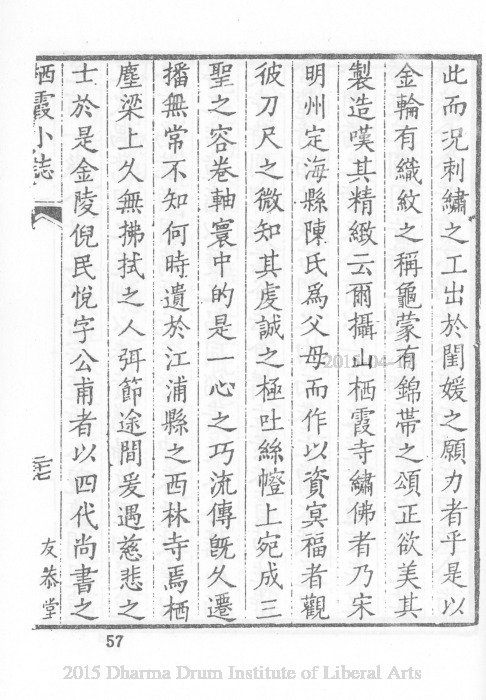 此而況刺繡之工出於閨媛之願力者乎是以
金輪有織紋之稱龜蒙有錦帯之頌正欲美其
製造嘆其精緻云爾攝山栖霞寺繡佛者乃宋
明州定海縣陳氏爲父母而作以資冥福者觀
彼刀尺之微知其虔誠之極吐絲幰上宛成三
聖之容卷軸寰中的是一心之巧流傳旣久遷
播無常不知何時遺於江浦縣之西林寺焉栖
塵梁上久無拂拭之人弭節途間爰遇慈悲之
士於是金陵倪民悅字公甫者以四代尚書之
栖霞小誌
二七
友恭堂
57
2015-04-
2015 Dharma Drum Institute of Liberal Arts